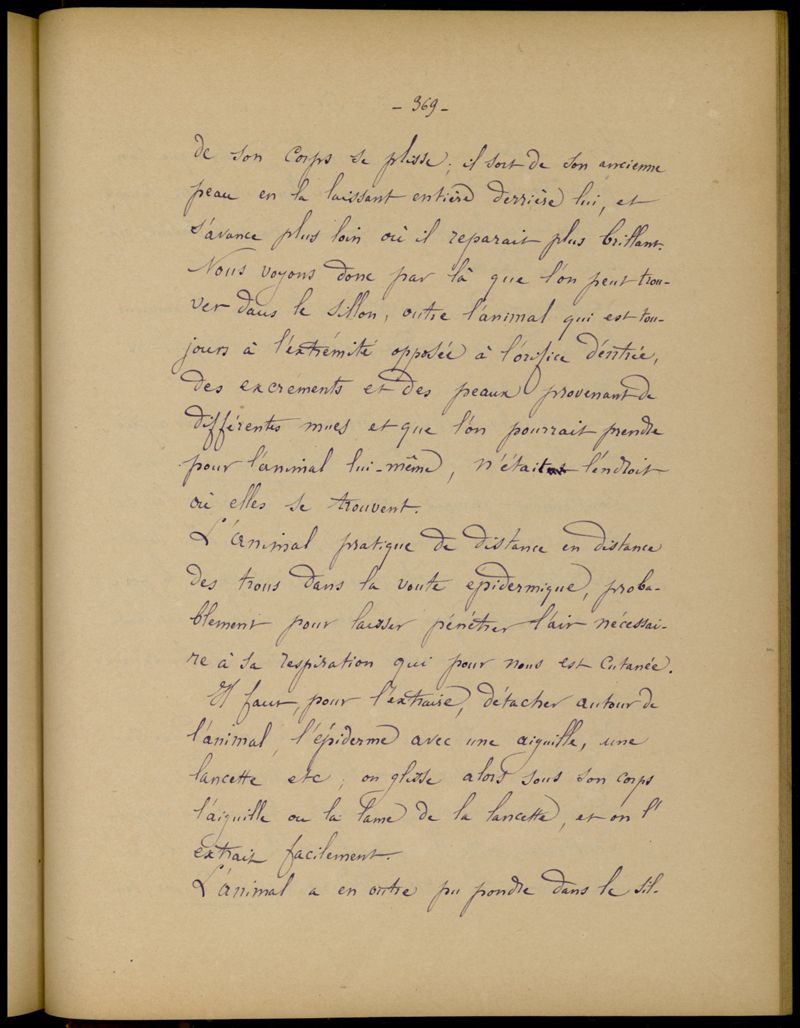 - 369 -
de son corps se plisse ; il sort de son ancienne
peau en la laissant entière derrière lui, et
s'avance plus loin où il reparait plus brillant.
Nous voyons donc par là que l'on peut trou-
ver dans le sillon, outre l'animal qui est tou-
jours à l'extrémité opposée à l'orifice d'entrée,
des excréments et des peaux provenant de
différentes mues et que l'on pourrait prendre
pour l'animal lui-même, n'était l'endroit
où elles se trouvent.
L'animal pratique de distance en distance
des trous dans la voute epidermique, proba-
blement pour laisser pénétrer l'air nécessai-
re à sa respiration qui pour nous est cutanée.
Il faut, pour l'extraire, détacher autour de
l'animal l'épiderme avec une aiguille, une
lancette etc ; on glisse alors sous son corps
l'aiguille ou la lame de la lancette, et on l'
extrait facilement.
L'animal a en outre pu pondre dans le sil-